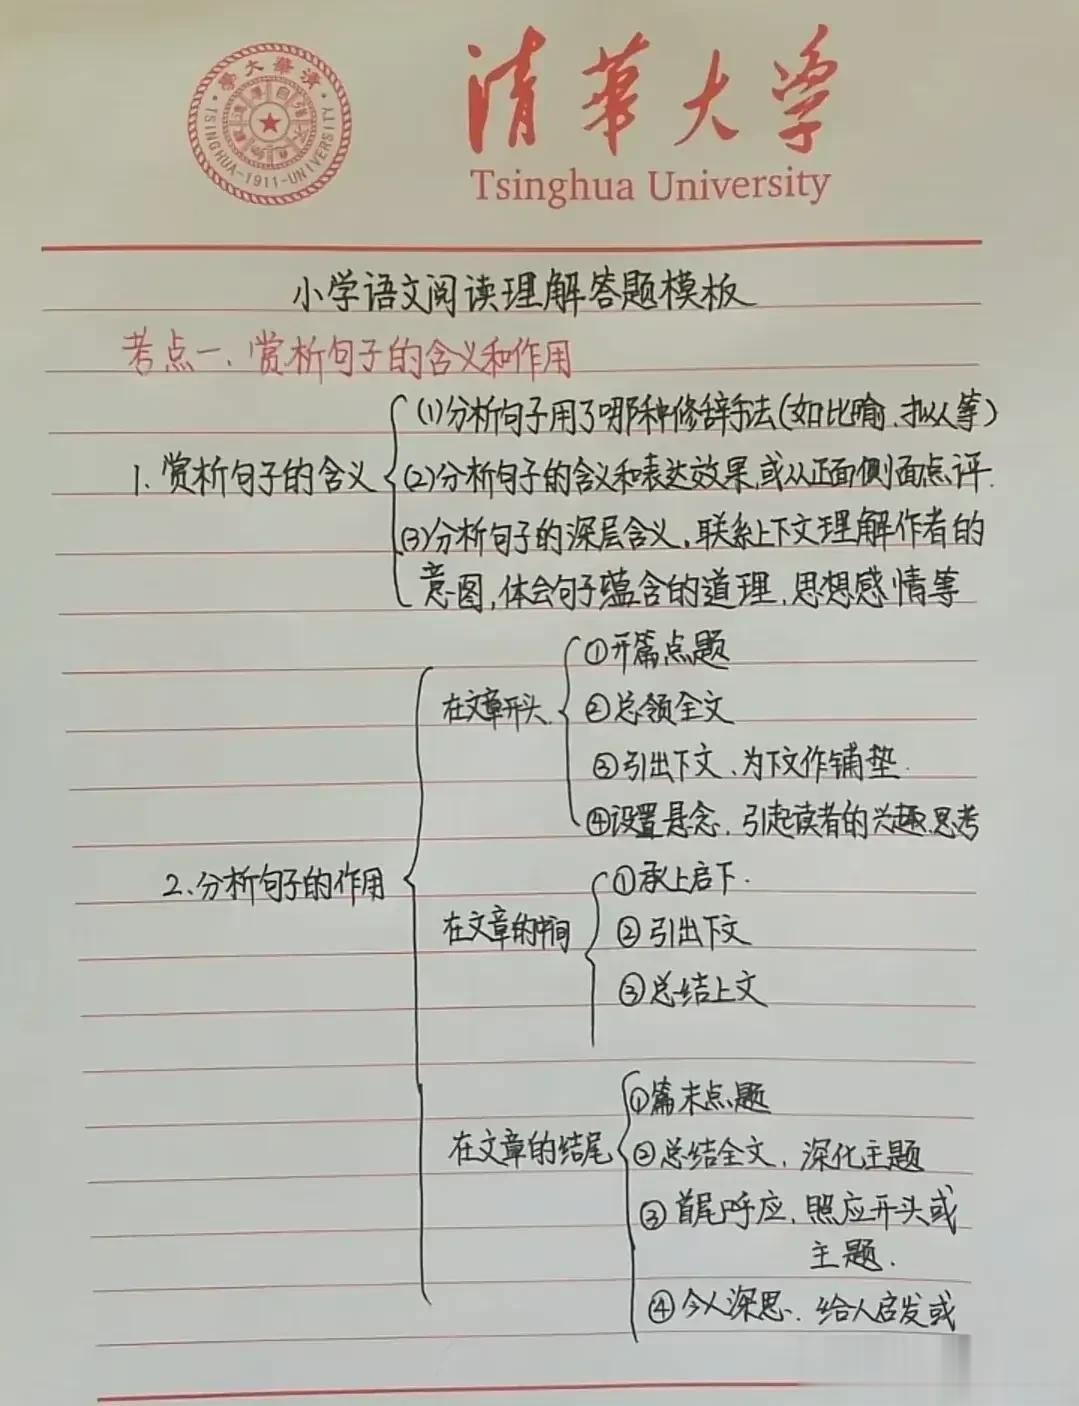 清華大学
Tsinghua University
清華大學
TSINGHUA-1911-UNIVERSITY
小学语文阅读理解答题模板
考点一、赏析句子的含义和作用
1.赏析句子的含义
(1)分析句子用了哪种修辞手法(如比喻、拟人等)
(2)分析句子的含义和表达效果,或从正面侧面点评.
(3)分析句子的深层含义,联系上下文理解作者的
意图,体会句子蕴含的道理、思想感情等
2.分析句子的作用
在文章开头.
①开篇点题
②总领全文
③引出下文、为下文作铺垫.
④设置悬念、引起读者的兴趣.思考
在文章的中间
①承上启下.
②引出下文
③总结上文
在文章的结尾
①篇末点题
②总结全文、深化主题
③首尾呼应、照应开头或
主题.
④令人深思、给人启发或